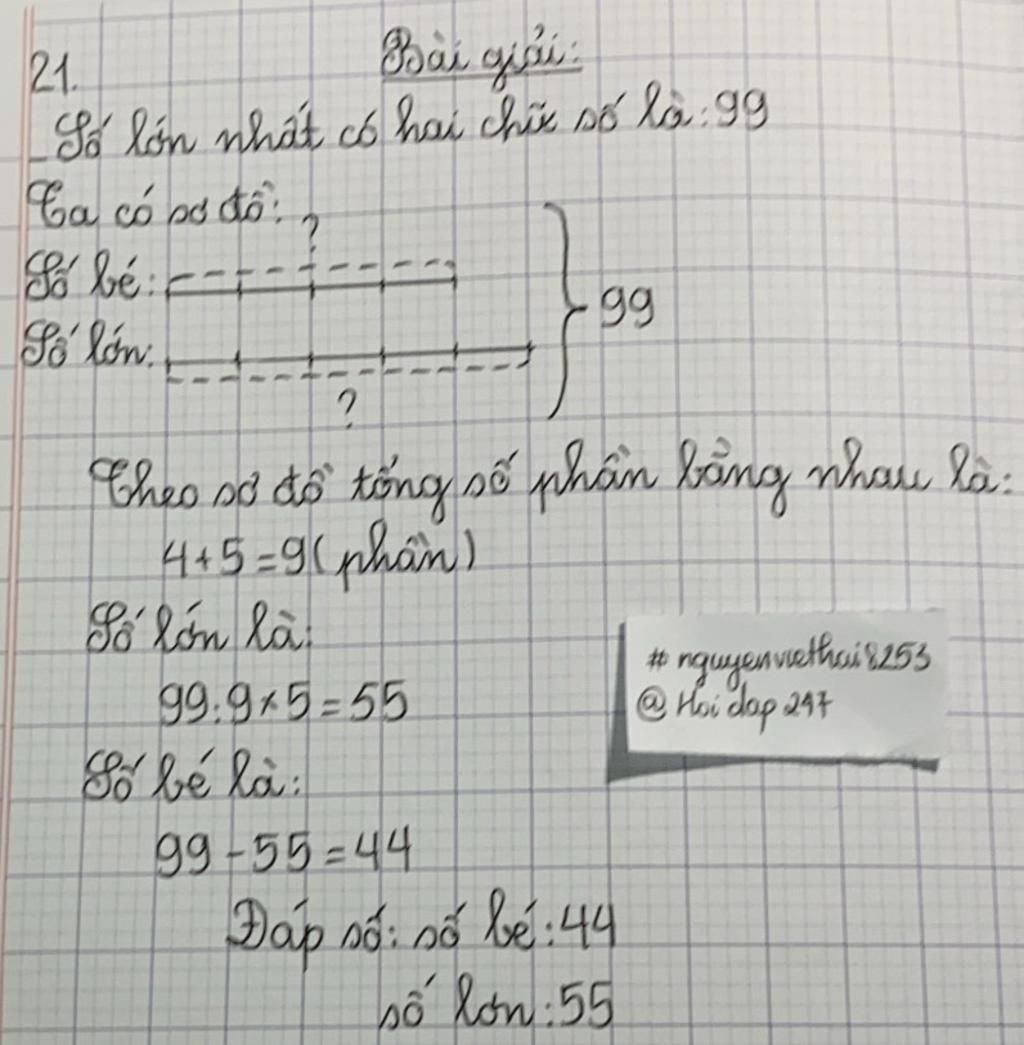 21. Bài giải:
_Số lớn nhất có hai chữ số là: 99
Ta có sơ đồ:
?
Số bé:
99
Số lớn:
?
Theo sơ đồ tổng số phần bằng nhau là:
4+5=9(phần)
Số lớn là:
99:9×5=55
# nguyenviethai8253
@ Hoi dap 247
Số bé là:
99-55=44
Đáp số: số bé: 44
số lơn: 55